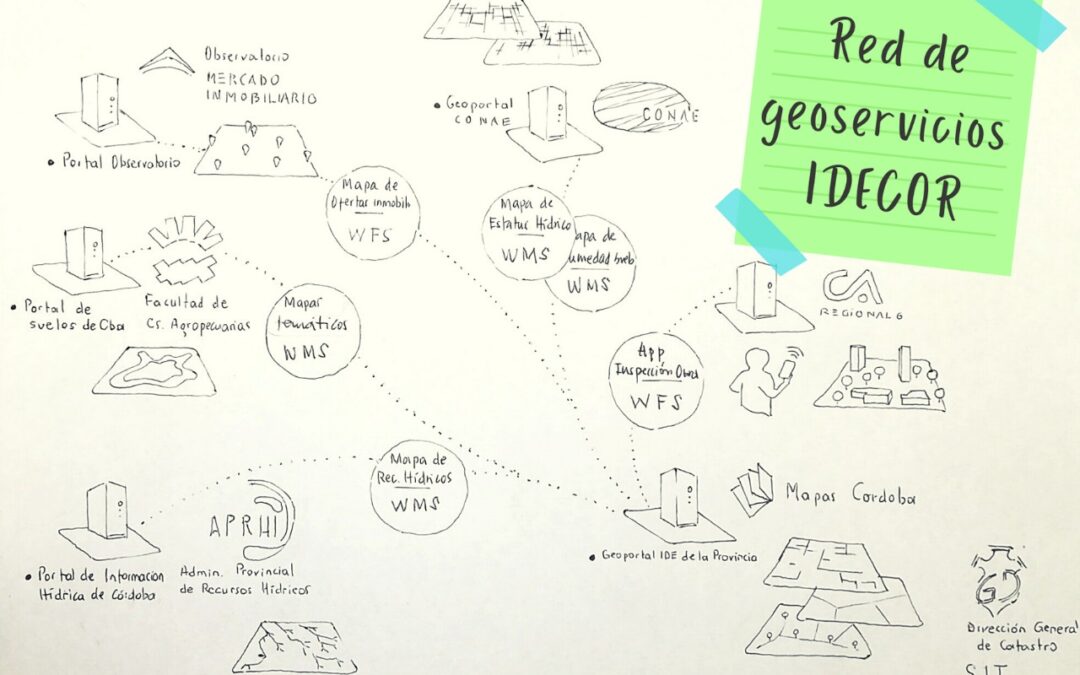 Red de
geoservicios
IDECOR
Observatorio
MERCADO
INMOBILIARIO
• Portal Observatorio
Mapa de
Ofertas inmobili
WFS
• Geoportal
CONAE
CONAE
Mapa de
Estatus Hídrico
WMS
apa de
umedad
WMS
• Portal de
suelos de Cba
Facultad de
Cs. Agropecuarias
Mapas
temáticos
WMS
CA
REGIONAL 6
App
Inspección Obras
WFS
Mapa de
Rec. Hídricos
WMS
• Portal de Información
Hídrica de Córdoba
APRHI
Admin. Provincial
de Recursos Hídricos
• Geoportal IDE de la Provincia
Mapas Cordoba
GD
Dirección General
de Catastro
SIT